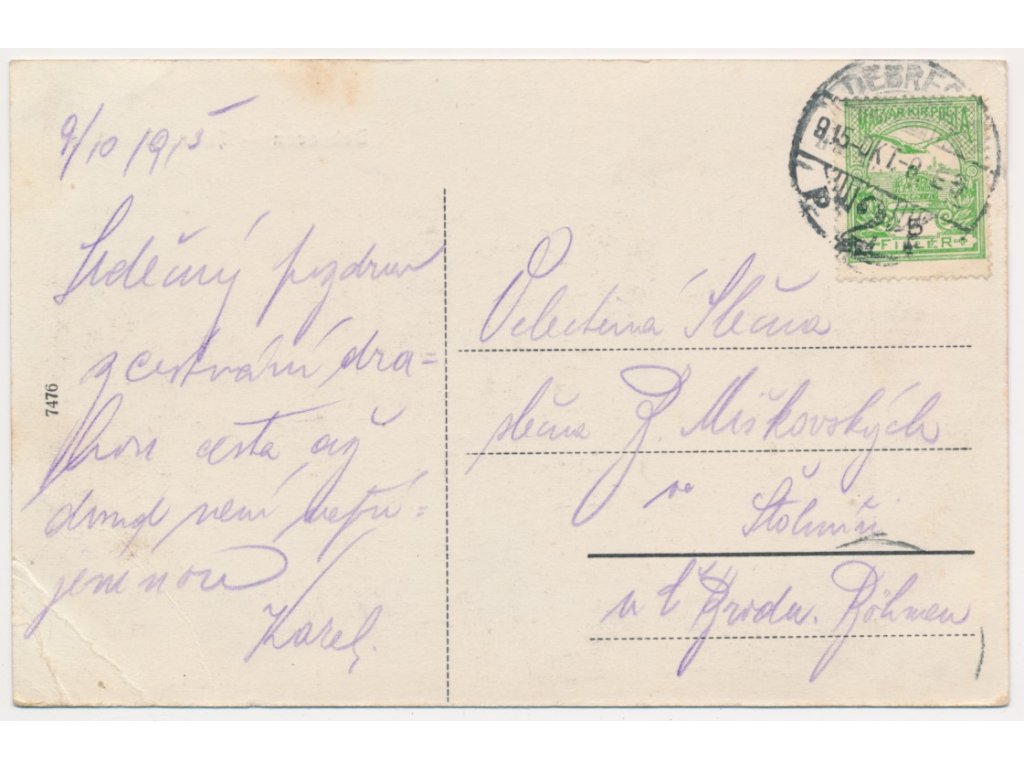 9/10 1915
Srdečný pozdrav
z cestování dra=
hou cesta až
dosud není nepří=
jemnou
Karel.
7476
DEBREC
915-OKT-8
MAGYAR KIR. POSTA
5
FILLER
Velectěná Slečna
slečna B. Miškovských
ve
Štolmíři
u Č Brodu. Böhmen